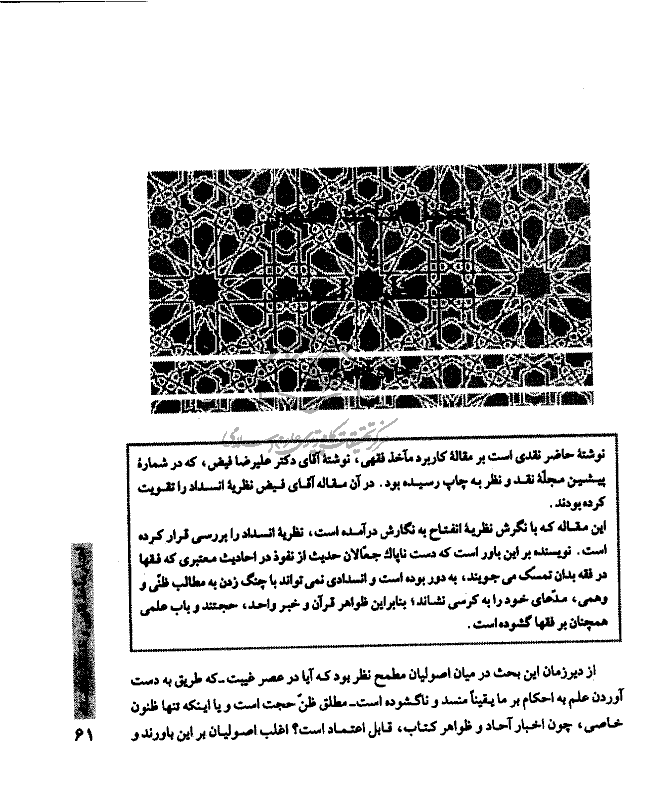 نوشتهٔ حاضر نقدی است بر مقالهٔ کاربرد مآخذ فقهی، نوشتهٔ آقای دکتر علیرضا فیض، که در شمارهٔ
پیشین مجلّهٔ نقد و نظر به چاپ رسیده بود. در آن مقاله آقای فیض نظریهٔ انسداد را تقویت
کرده بودند.
این مقاله که با نگرش نظریهٔ انفتاح به نگارش درآمده است، نظریهٔ انسداد را بررسی قرار کرده
است. نویسنده بر این باور است که دست ناپاك جعّالان حدیث از نفوذ در احادیث معتبری که فقها
در فقه بدان تمسک می جویند، به دور بوده است و انسدادی نمی تواند با چنگ زدن به مطالب ظنّی و
وهمی، مدّعای خود را به کرسی نشاند؛ بنابراین ظواهر قرآن و خبر واحد، حجتند و باب علمی
همچنان بر فقها گشوده است.
از دیرزمان این بحث در میان اصولیان مطمح نظر بود که آیا در عصر غیبت ـ که طریق به دست
آوردن علم به احکام بر ما یقیناً منسد و ناگشوده است ـ مطلق ظنّ حجت است و یا اینکه تنها ظنون
خاصی، چون اخبار آحاد و ظواهر کتاب، قابل اعتماد است؟ اغلب اصولیان بر این باورند و
۶۱